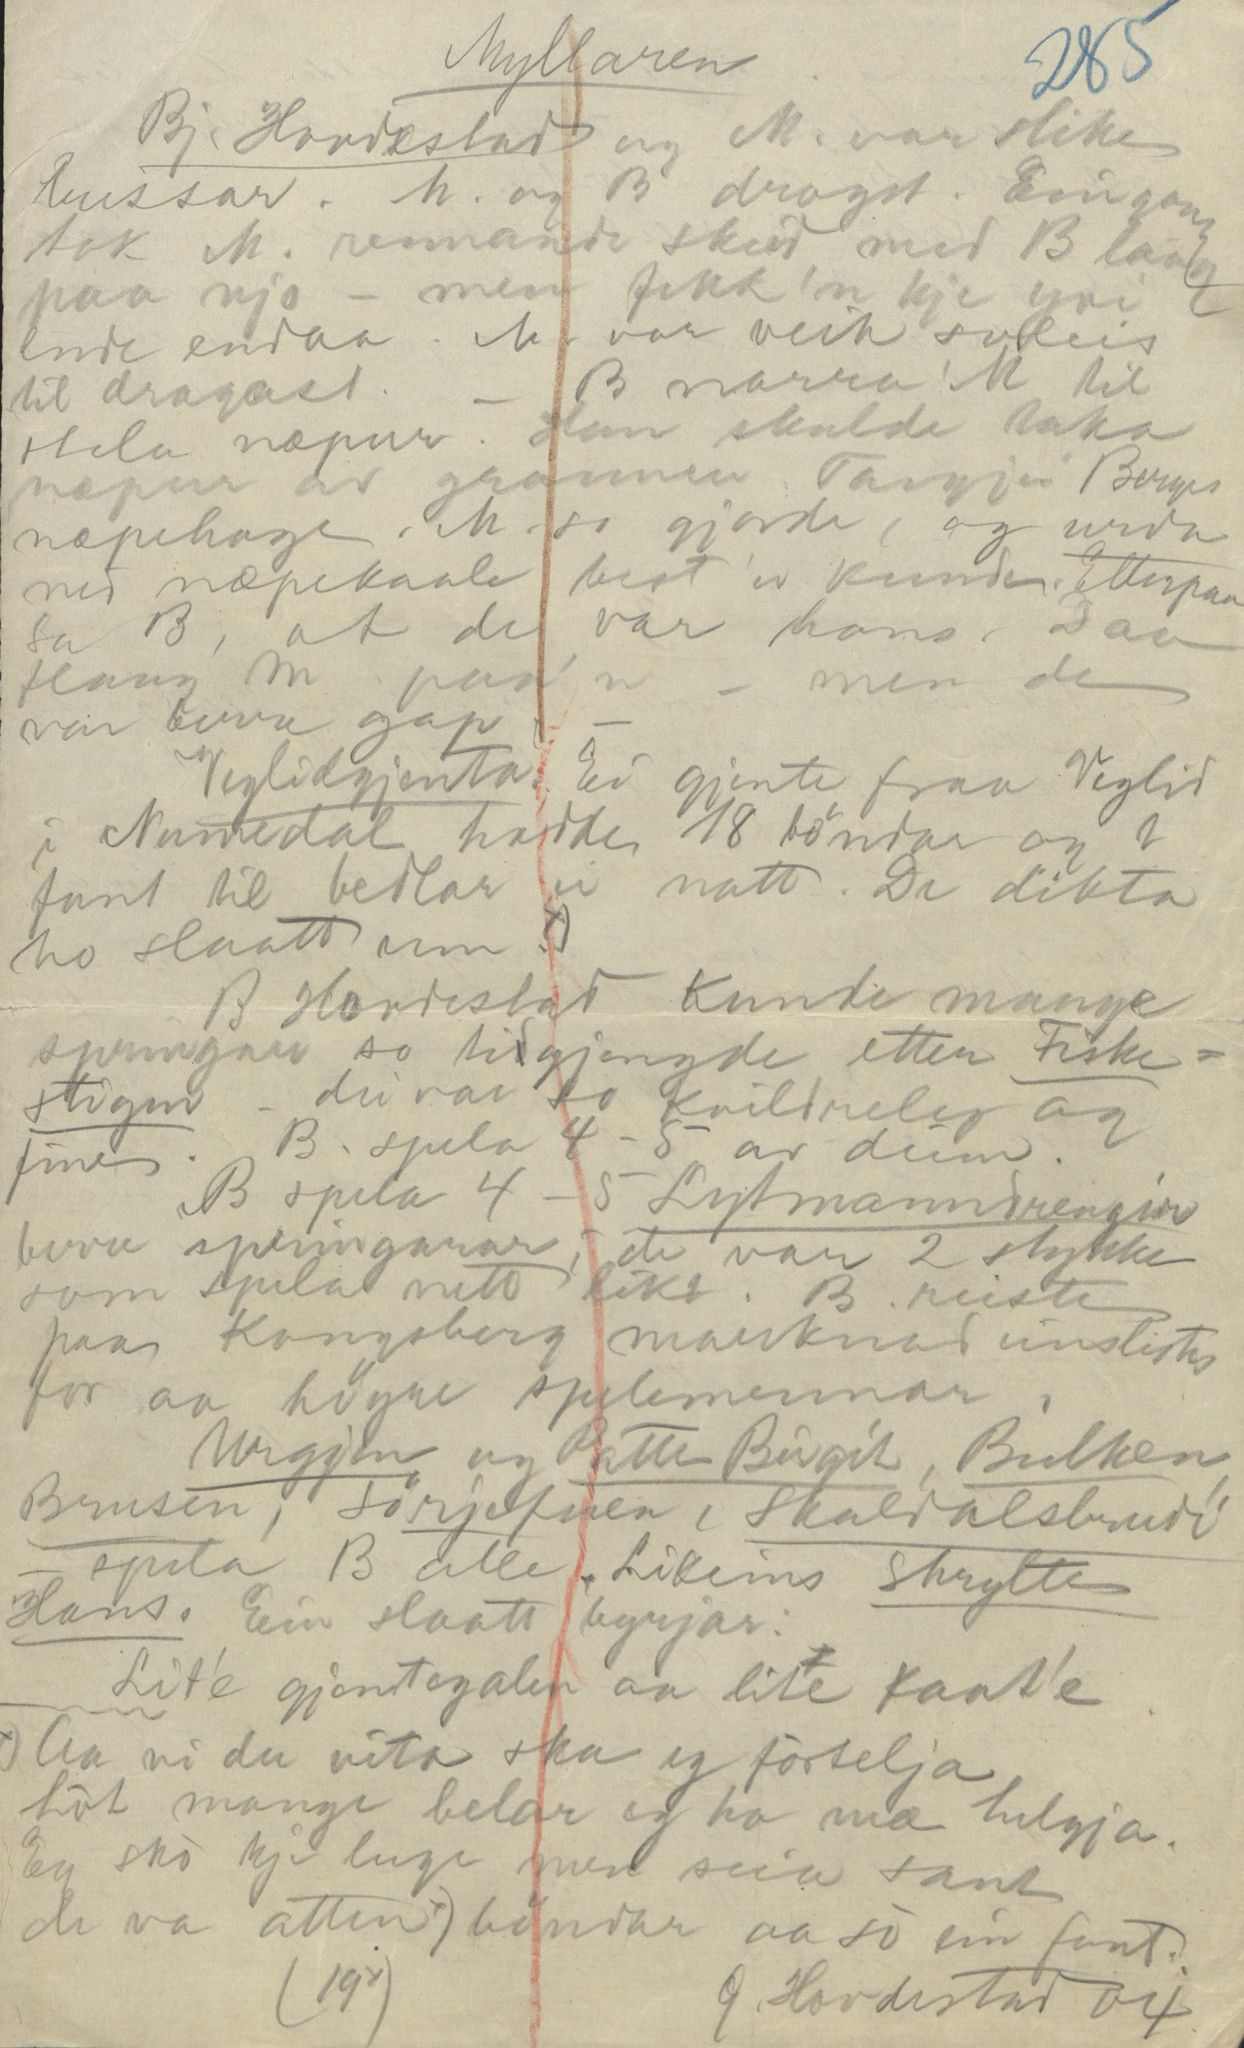 Myllaren
285
Bj. Hovdestad og M. var slike
bussar. M. og B drogst. Eingong
tok M. rennande skeid med B laag
paa njo – men fekk'n kje yvi
ende endaa. M. var veik soleis
til dragast. – B narra M til
stela næpur. Han skulde taka
næpur av grannen Targjei Borges
næpehage. M so gjorde, og urda
ned næpekaale best 'n kunde. Etterpaa
sa B, at de var hans. Daa
flaug M paa'n – men de
var berre gap. –
Veglidgjenta. Ei gjente fraa Veglid
i Numedal hadde 18 böndar og 1
fant til bedlar ei natt. De dikta
ho slaatt um x)
B Hovdestad kunde mange
springarar so tilgjengde etter Fiske=
stigen – dei var so kvildreleg og
fine. B. spela 4–5 av deim.
B spela 4–5 Lytmanndrengir
berre springarar, de var 2 stykke
som spela nett likt. B. reiste
paa Kongsberg marknad einslists
for aa höyre spelemennar.
Urgjen og Patte Birgit, Bulken,
Brusen, Sörjefuen, Skuldalsbrudi
– spela B alle. Likeins Skrylte
Hans. Ein slaatt byrjar:
Lit'e gjentegalen aa lite kaat'e
x) Aa vi du vita ska eg förtelja
höt mange belar eg ha mæ helgja.
Eg skö kje luge men seia sant
de va atten x) böndar aa sö ein fant.
(19 x)
Q. Hovdestad 04